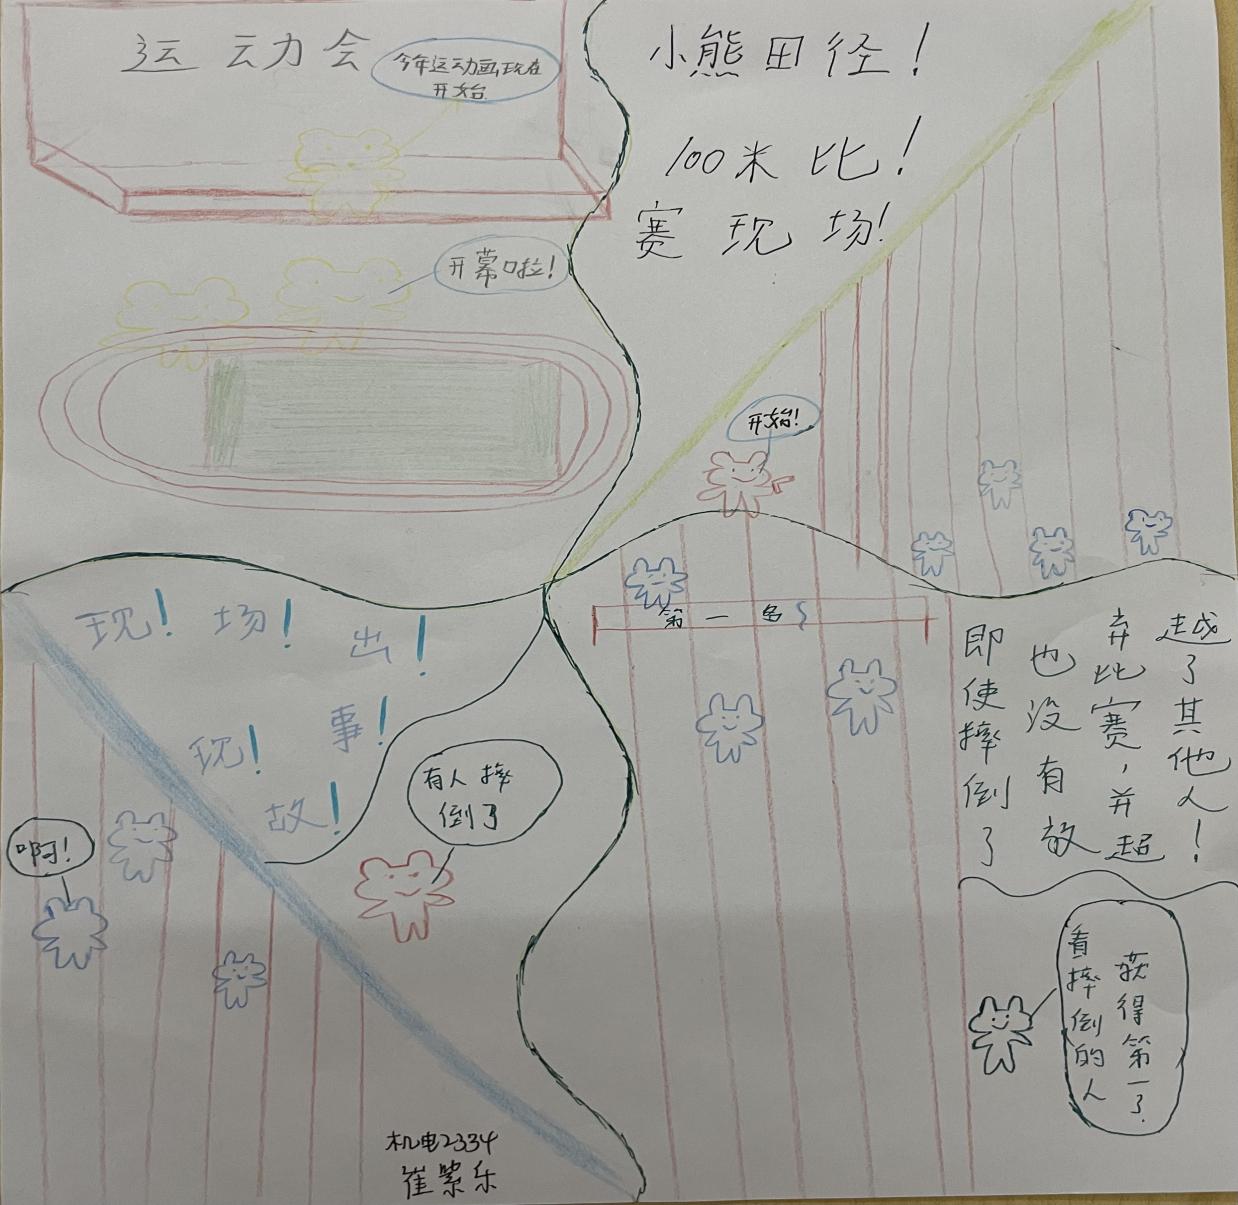 运动力会
今年运动画现在
开始
开幕啦！
小熊田径！
100米比！
赛现场！
开始！
现！场！出！
现！事！
故！
啊！
有人摔
倒了
第一名
即使摔倒了
也没有放
弃比赛，并超
越了其他人！
看摔倒的人
获得第一了
机电2334